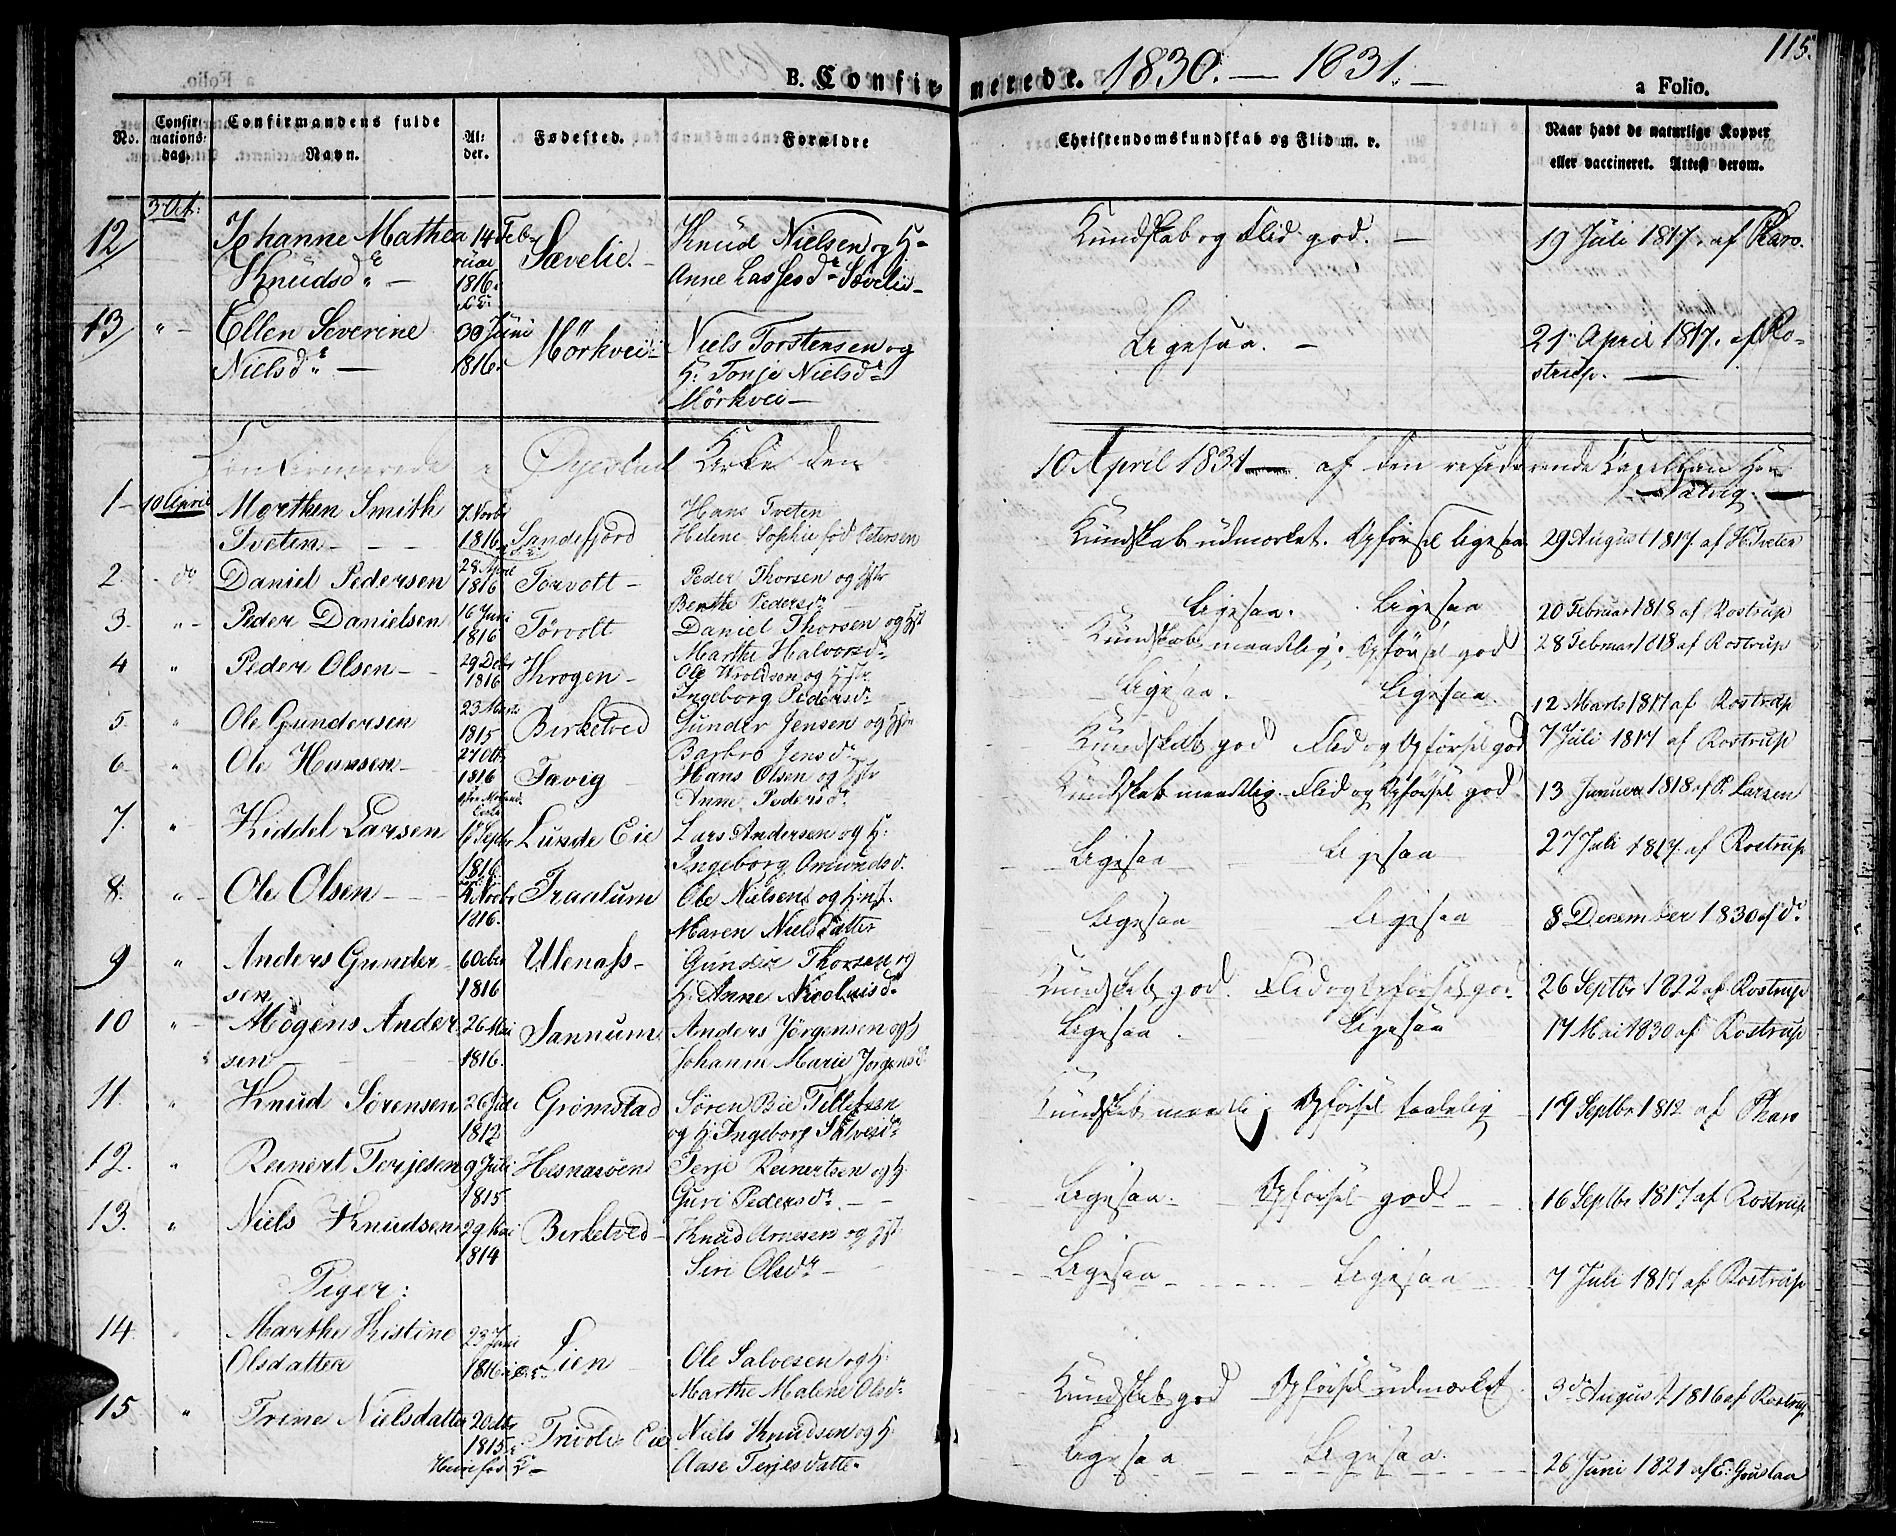 115.
B. Confirmerede. 1830. — 1831. —
a Folio.
No.
Confirmations-dag.
Confirmandens fulde Navn.
Alder.
Fødested.
Forældre
Christendomskundskab og Flid m. v.
Naar havt de naturlige Kopper eller vaccineret. Attest derom.
12 3 Oct: Johanne Mathea Knudsdr — 14 Februar 1816. Sævelie. — Knud Nielsen og H- Anne Lassesdr Sævelie — Kundskab og Flid god. — 19 Juli 1817. af Tharo.
13 " — Ellen Severine Nielsdr — 30 Juni 1816. Mörkvei — Niels Torstensen og H: Tonje Nielsdr Mörkvei — Ligesaa. — 21 April 1817. af Rostrup. —
Confirmerede i Öyestad Kirke den 10 April 1831 — af den residerende Capellan Her
1 — 10 April Morthen Smith Tveten — 7 Novbr 1816 Sandefjord Hans Tveten Helene Sophie fød Petersen Kundskab udmærket. Opförsel ligesaa 29 August 1817 af H. Tveten
2. do Daniel Pedersen 28 April 1816 Törvolt — Peder Thorsen og Hstr Berthe Pedersdr Ligesaa. Ligesaa 20 Februar 1818 af Rostrup
3. " Peder Danielsen 16 Juni 1816 Törvolt Daniel Thorsen og Hst Marthe Halvorsdr Kundskab maadelig; Opförsel god 28 Februar 1818 af Rostrup
4 " Peder Olsen — 29 Decbr 1816 Krogen — Ole Aroldsen og Hstr Ingeborg Pedersdr Ligesaa. Ligesaa. 12 Marts 1817 af Rostrup
5. " Ole Gundersen 23 Marts 1815 Birketved Gunder Jensen og Hstr Barbro Jensdr Kundskab god Flid og Opförsel god 7 Juli 1817 af Rostrup
6. " Ole Hansen — 27 Octbr 1816 Tavig — Hans Olsen og Hstr Anne Pedersdr Kundskab maadelig. Flid og Opförsel god 13 Januar 1818 af P. Larsen
7. " Kiddel Larsen Septbr 1816 Lunde Eie Lars Andersen og H: Ingeborg Omundsd. Ligesaa — Ligesaa 27 Juli 1817 af Rostrup
8. " Ole Olsen — Novbr 1816. Traalum Ole Nielsen og H:nst. Maren Niels Datter Ligesaa Ligesaa 8 December 1830 af do
9 " Anders Gundersen 6 Octbr 1816 Ulenæss — Gunder Thorsen og H: Anne Nicolaisdr Kundskab god. Flid og Opförsel god 26 Septbr 1822 af Rostrup
10 " Mogens Andersen 26 Mai 1816. Sannum Anders Jörgensen og H Johanne Marie Jörgensd Ligesaa. Ligesaa 17 Mai 1830 af Rostrup
11. " Knud Sörensen 26 Febr 1812 Grömstad Sören Bie Tellefsen og H: Ingeborg Salvesdr Kundskab maadelig Opförsel taalelig 19 Septbr 1812 af Tharo
12. " Reinert Terjesen 9 Juli 1815 Hesnæsöen Terje Reinertsen og H: Guri Pedersdr — Ligesaa. — Opförsel god — 16 Septbr 1817 af Rostrup
13. " Niels Knudsen 29 Mai 1814 Birketved — Knud Arnesen og Hst: Siri Olsdr — Ligesaa — Ligesaa 7 Juli 1817 af Rostrup
Piger:
14 " Marthe Kistine Olsdatter 23 Juni 1816 Lien — Ole Salvesen og H: Marthe Malene Olsdr Kundskab god Opförsel udmærket. 3de August 1816 af Rostrup
15 " Trine Nielsdatter 20 Octbr 1815 Trivoli Eie Niels Knudsen og H: Aase Terjesdatter Ligesaa — Ligesaa. — 26 Juni 1821 af E: Groustaa